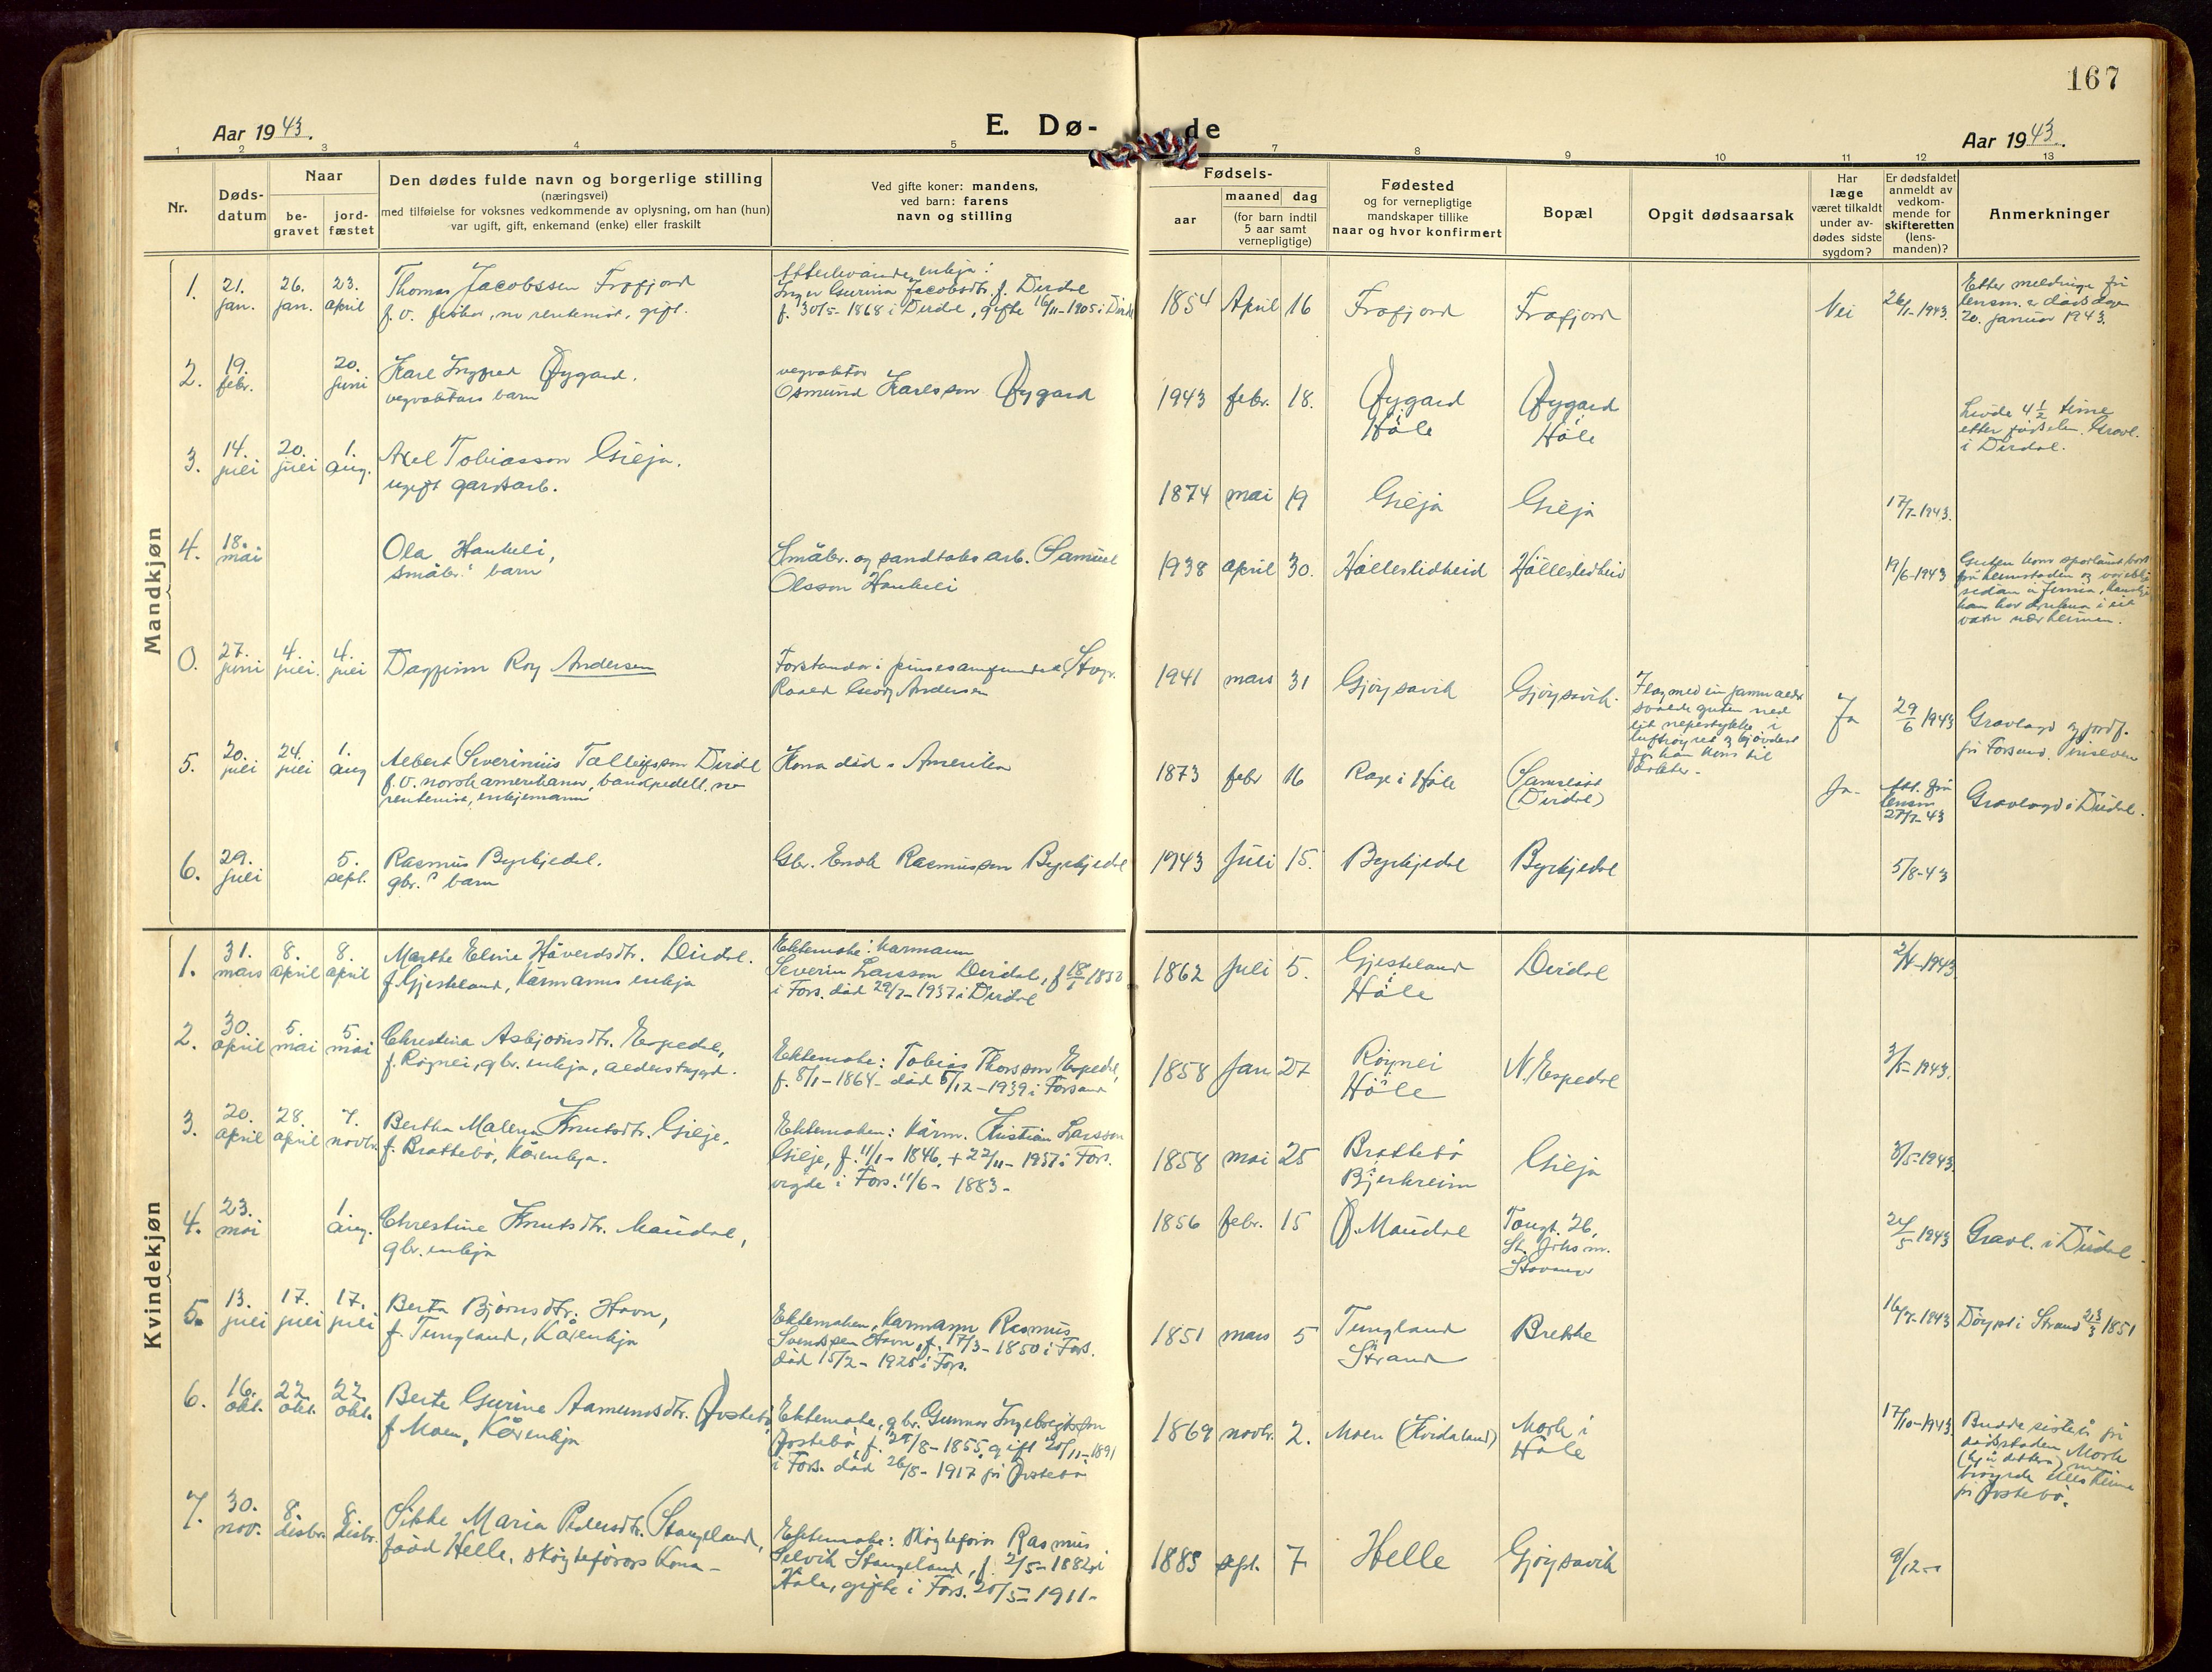 167
Aar 1943.
E. Dø-
de
Aar 1943.
1 2 3 4 5 7 8 9 10 11 12 13
Nr.
Døds-
datum
Naar
be-
gravet
jord-
fæstet
Den dødes fulde navn og borgerlige stilling
(næringsvei)
med tilføielse for voksnes vedkommende av oplysning, om han (hun)
var ugift, gift, enkemand (enke) eller fraskilt
Ved gifte koner: mandens,
ved barn: farens
navn og stilling
Fødsels-
aar
maaned dag
(for barn indtil
5 aar samt
vernepligtige)
Fødested
og for vernepligtige
mandskaper tillike
naar og hvor konfirmert
Bopæl
Opgit dødsaarsak
Har
læge
været tilkaldt
under av-
dødes sidste
sygdom?
Er dødsfaldet
anmeldt av
vedkom-
mende for
skifteretten
(lens-
manden)?
Anmerkninger
Mandkjøn
1. 21. jan. 26. jan. 23. april
Thomas Jacobssen Frafjord
f. v. fisker, no rentenist, gift.
Etterlevande enkja:
Inger Gurina Jacobsdtr. f. Dirdal
f. 30/5-1868 i Dirdal, gifte 16/11-1905 i Dirdal
1854 April 16 Frafjord Frafjord Nei 26/1-1943.
Etter meldinga frå
lensm. er dødsdagen
20. januar 1943.
2. 19. febr. 20. juni
Karl Ingfred Øygard.
vegvaktars barn
vegvaktar
Osmund Karlsson Øygard
1943 febr. 18. Øygard Høle Øygard Høle
Livde 4 1/2 time
etter fødselen. Gravl.
i Dirdal.
3. 14. juli 20. juli 1. aug.
Axel Tobiasson Gilja.
ugift gardsarb.
1874 mai 19 Gilja Gilja 17/7-1943.
4. 18. mai
Ola Haukeli,
småbr.s barn
Småbr. og sandtaksarb. Samuel
Olsson Haukeli
1938 april 30. Hålleslidheid Hålleslidheid 19/6-1943
Guten kom sporlaust bort
frå heimstaden og
sidan
i eit
vatn nær heimen.
0. 27. juni 4. juli. 4. juli
Dagfinn Roy Andersen
Forstandar i pinsesamfundet, Stvgr.
Roald Georg Andersen
1941 mars 31 Gjøysavik Gjøysavik.
guten ned
i
luftrøyret
til
dokter.
Ja 29/6 1943
Gravlagd og jordf.
frå Forsand. Pinseven
5. 20. juli 24. juli 1. aug
Albert Severinius Tollefsson Dirdal
f. v. norskamerikanar, bankpedell, no
rentenist, enkjemann
Kona død i Amerika
1873 febr 16 Rage i Høle
(Dirdal)
Ja. Att. frå
lensm
27/7-43
Gravlagd i Dirdal.
6. 29. juli 5. sept.
Rasmus Byrkjedal.
gbr.s barn
Gbr. Enok Rasmusson Byrkjedal
1943 Juli 15. Byrkjedal Byrkjedal 5/8-43
Kvindekjøn
1. 31. mars 8. april 8. april
Marthe Eline Håvardsdtr. Dirdal.
f. Gjesteland, Kårmanns enkja
Ektemake: karmann
Severin Larsson Dirdal,
i Fors. død 29/7-1937 i Dirdal
1862 Juli 5. Gjesteland i Høle Dirdal 2/4-1943
2. 30. april 5. mai 5 mai
Christina Asbjørnsdtr. Espedal,
f. Røgnei, gbr. enkja, alderstrygd.
Ektemake: Tobias Thorsson Espedal,
f. 8/1-1864- død 5/12-1939 i Forsand
1858 Jan 27. Røynei Høle N. Espedal 3/5-1943.
3. 20. april 28. april 7. novbr.
Bertha Malena Knutsdtr. Gilje.
f. Brattebø, Kårenkja.
Ektemaken: Kårm. Kristian Larsson
Gilje, f. 11/1-1846, + 22/11-1937 i Fors.
vigde i Fors. 11/6-1883-
1858 mai 25 Brattebø i Bjerkreim Gilja 3/5-1943
4. 23. mai 1. aug.
Christine Knutsdtr. Maudal,
gbr. enkja
1856 febr. 15 Ø. Maudal
26,
Stavanger
24/5 1943 Gravl. i Dirdal
5. 13. juli 17. juli 17. juli
Berta Bjørnsdtr. Havn,
f. Tungland, Kårenkja
Ektemaken, Karmann Rasmus
Svendsen Havn, f. 17/3-1850 i Fors.
død 15/2-1925 i Fors.
1851 mars 5 Tungland i Strand Brekke 16/7-1943 Døypt i Strand 23/3 1851
6. 16. okt. 22. okt. 22. okt.
Berte Gurine Aamundsdtr. Øvstebø,
f. Moen, Kårenkja
Ektemake, gbr. Gunnar Ingebrigtson
Øvstebø, f. 25/8-1855, gift 20/11-1891
i Fors. død 26/5-1917 på Øvstebø
1869 novbr. 2. Moen (Kvidaland) Mork i Høle 17/10-1943.
Budde siste å på
dødsstaden Mork
hos
på Øvstebø.
7. 30. nov. 8. desbr. 8. desbr.
Sikke Maria Pedersdtr. Stangeland,
fødd Helle. skøyteførars kona-
Ektemake: skøytefører Rasmus
Selvik Stangeland, f. 2/5-1882 i
Høle, gifte i Fors. 20/5-1911-
1885 sept. 7 Helle Gjøysavik 8/12-